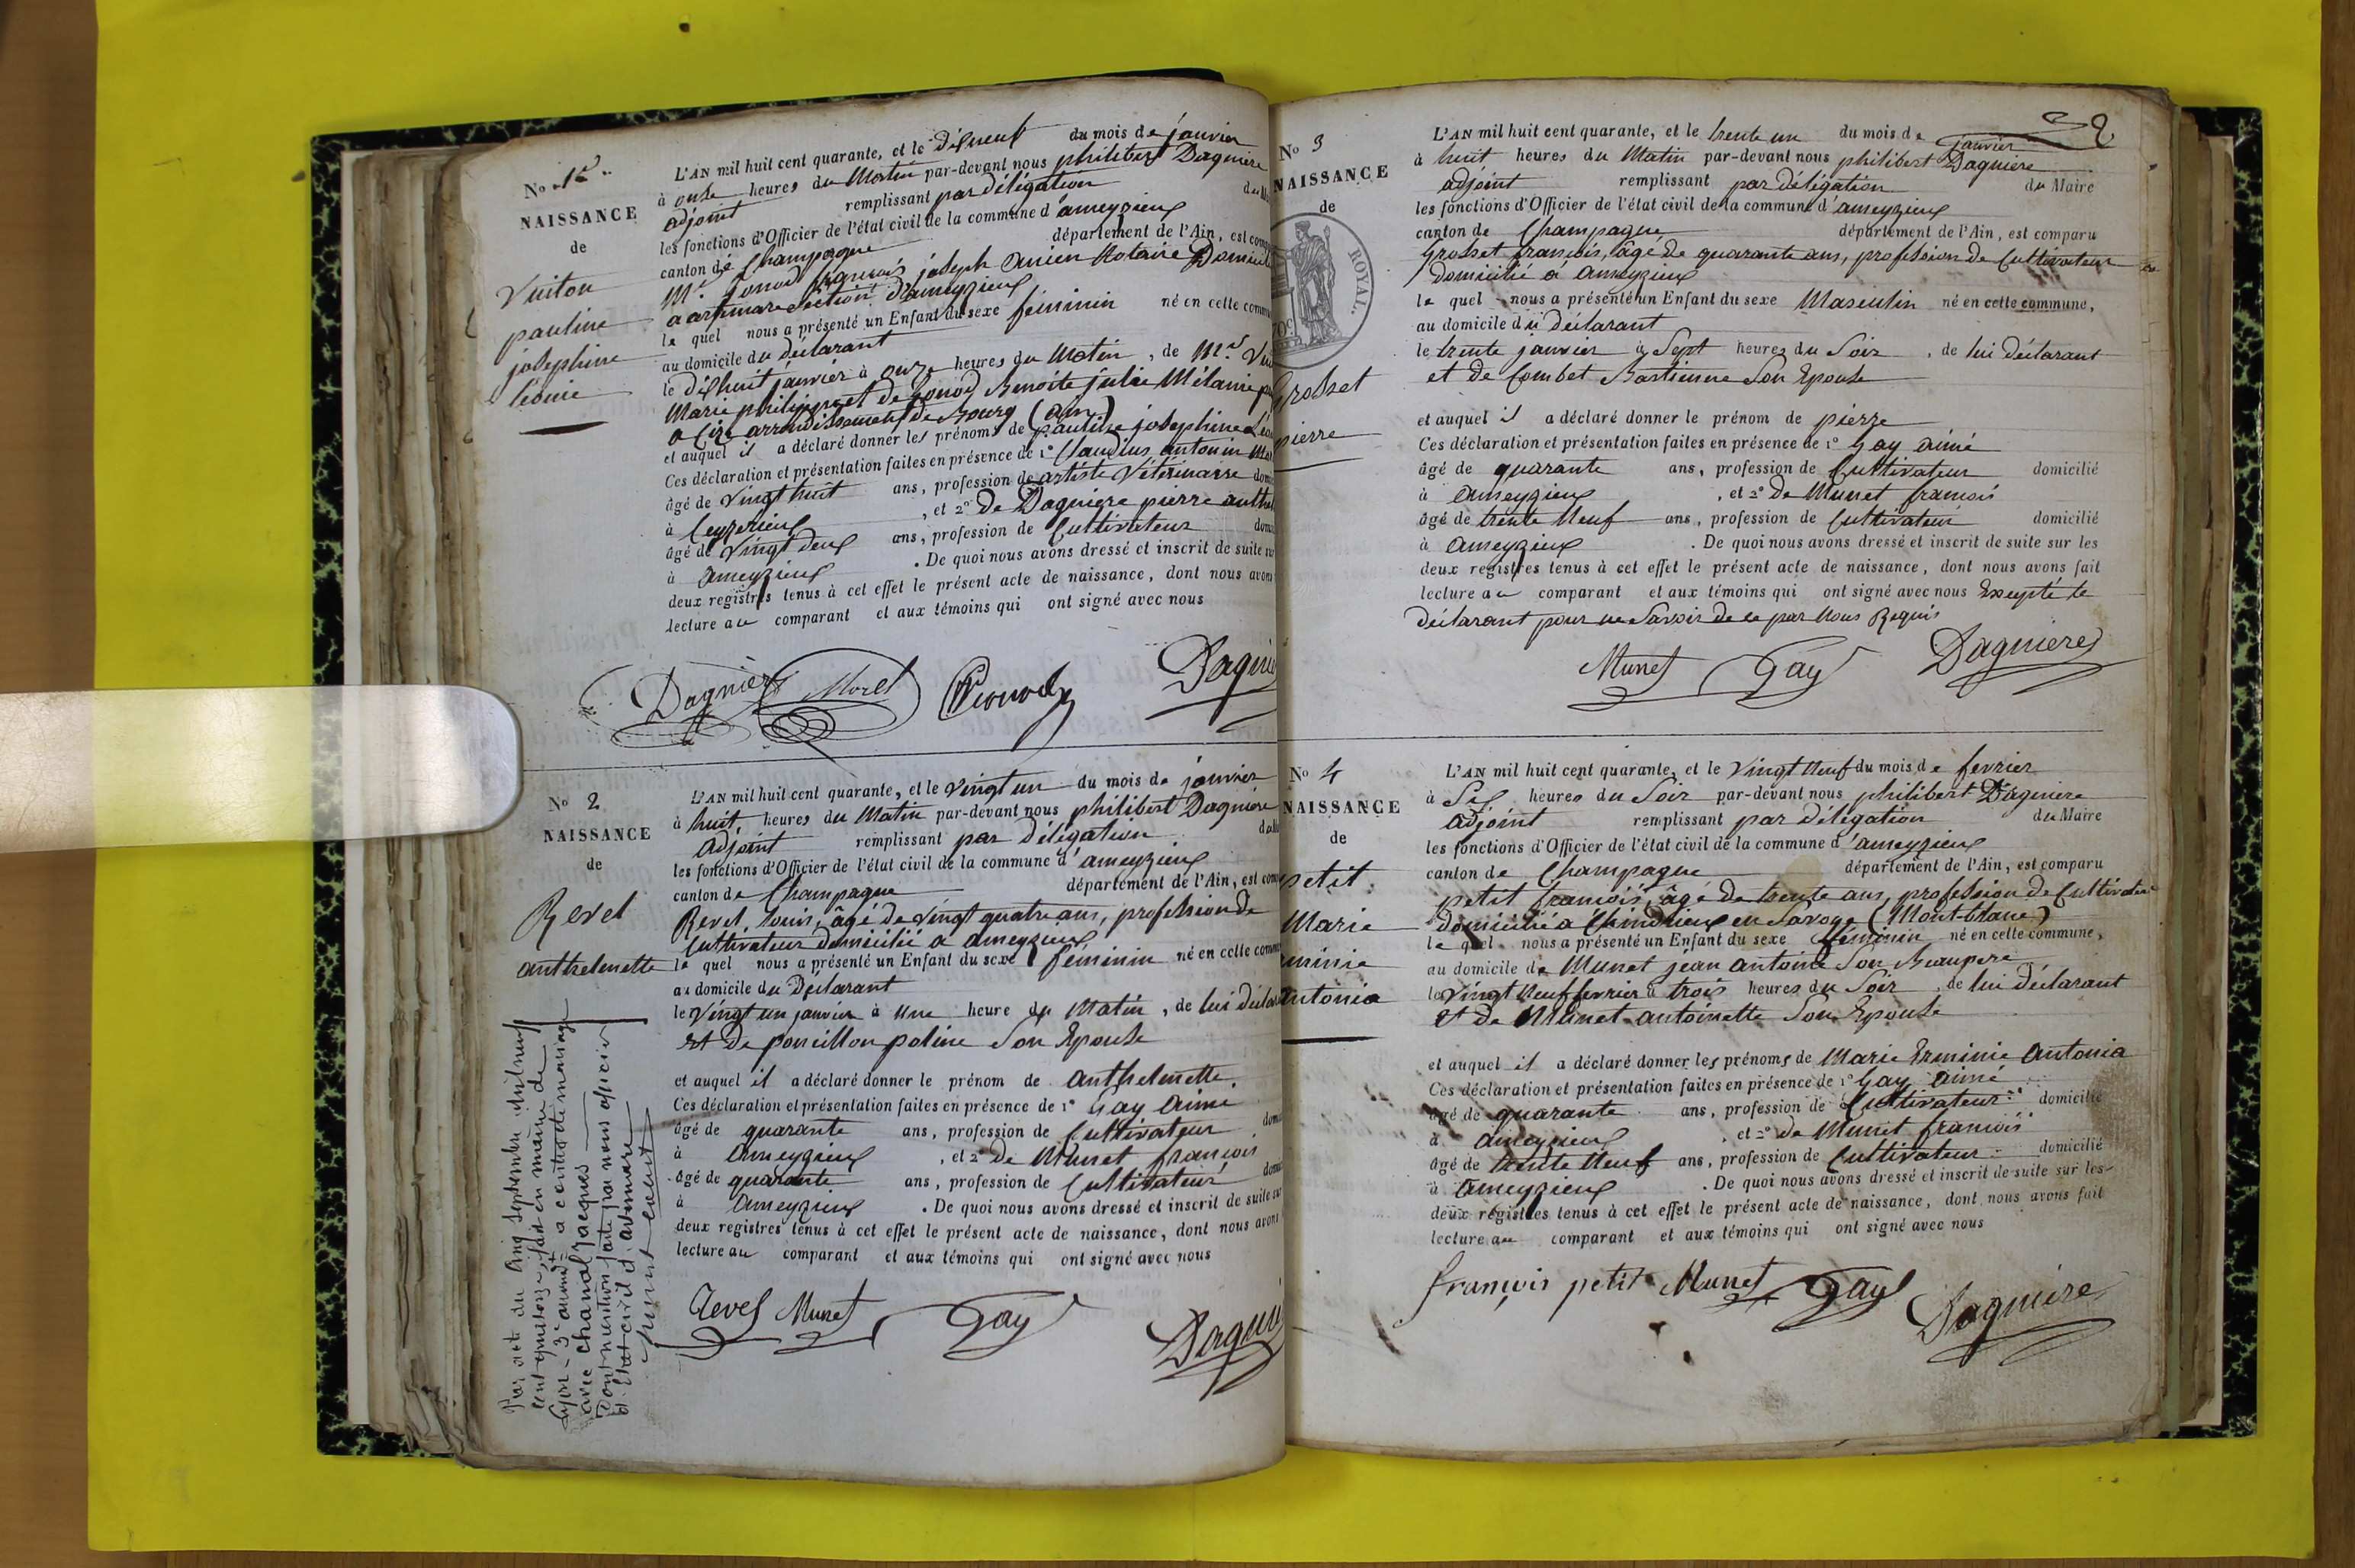 No 1er
NAISSANCE
de
Vuiton
pauline
josephine
léonie
L'AN mil huit cent quarante, et le dixneuf du mois de janvier
à onze heures du Matin par-devant nous philibert Dagniere
adjoint remplissant par délégation du
les fonctions d'Officier de l'état civil de la commune d'ameyzieux
canton de Champagne département de l'Ain, est comp
Me. Jonod françois joseph ancien Notaire Domicil
a artemare section d'ameyzieux
le quel nous a présenté un Enfant du sexe féminin né en cette comm
au domicile du déclarant
le dixhuit janvier à onze heures du Matin, de Mr. Vui
Marie philippe et de Jonod Benoite julie Mélanie
arrondissement de Bourg (ain)
et auquel il a déclaré donner les prénoms de pauline josephine Léo
Ces déclaration et présentation faites en présence de 1° Claudius antonin Mor
âgé de vingt huit ans, profession de artiste Vétérinaire dom
à Ceyzerieux, et 2° de Dagniere pierre anthel
âgé de vingt deux ans, profession de Cultivateur dom
à ameyzieux. De quoi nous avons dressé et inscrit de suite su
deux registres tenus à cet effet le présent acte de naissance, dont nous avons
lecture au comparant et aux témoins qui ont signé avec nous
Dagniere Morel Jonod Dagnie
No 2
NAISSANCE
de
Revel
anthelmette
L'AN mil huit cent quarante, et le vingt un du mois de janvier
à huit heures du Matin par-devant nous philibert Dagniere
adjoint remplissant par délégation du
les fonctions d'Officier de l'état civil de la commune d'ameyzieux
canton de Champagne département de l'Ain, est com
Revel Louis, âgé de vingt quatre ans, profession de
Cultivateur domicilié a ameyzieux
le quel nous a présenté un Enfant du sexe féminin né en cette comm
au domicile du Déclarant
le vingt un janvier à une heure du Matin, de lui décla
et de poncillon poline Son Epouse
et auquel il a déclaré donner le prénom de anthelmette.
Ces déclaration et présentation faites en présence de 1° Gay aimé
âgé de quarante ans, profession de Cultivateur dom
à ameyzieux, et 2° de Munet françois
âgé de quarante ans, profession de Cultivateur domi
à ameyzieux. De quoi nous avons dressé et inscrit de suite su
deux registres tenus à cet effet le présent acte de naissance, dont nous avons
lecture au comparant et aux témoins qui ont signé avec nous
Revel Munet Gay Dagni
Par acte du cinq Septembre mil neuf
cent quatorze, fait en mairie de
Lyon - 3e arrond. a contracté mariage
avec Chamal Jacques
Dont mention faite par nous officier
d'Etat civil d'artemare
No 3
NAISSANCE
de
Grosset
pierre
ROYAL
70c
32
L'AN mil huit cent quarante, et le trente un du mois de janvier
à huit heures du Matin par-devant nous philibert Dagniere
adjoint remplissant par délégation du Maire
les fonctions d'Officier de l'état civil de la commune d'ameyzieux
canton de Champagne département de l'Ain, est comparu
Grosset françois, âgé de quarante ans, profession de Cultivateur
domicilié a ameyzieux
le quel nous a présenté un Enfant du sexe Masculin né en cette commune,
au domicile du déclarant
le trente janvier à Sept heures du Soir, de lui déclarant
et de Combet Bastienne Son Epouse
et auquel il a déclaré donner le prénom de pierre
Ces déclaration et présentation faites en présence de 1° Gay aimé
âgé de quarante ans, profession de Cultivateur domicilié
à ameyzieux, et 2° de Munet françois
âgé de trente Neuf ans, profession de Cultivateur domicilié
à ameyzieux. De quoi nous avons dressé et inscrit de suite sur les
deux registres tenus à cet effet le présent acte de naissance, dont nous avons fait
lecture au comparant et aux témoins qui ont signé avec nous Excepté le
déclarant pour ne Savoir de ce par Nous Requis
Munet Gay Dagniere
No 4
NAISSANCE
de
petit
Marie
minie
antonia
L'AN mil huit cent quarante, et le vingt Neuf du mois de fevrier
à Six heures du Soir par-devant nous philibert Dagniere
adjoint remplissant par délégation du Maire
les fonctions d'Officier de l'état civil de la commune d'ameyzieux
canton de Champagne département de l'Ain, est comparu
petit françois, âgé de trente ans, profession de Cultivateur
domicilié a Chindrieux en Savoye (Mont-blanc)
le quel nous a présenté un Enfant du sexe féminin né en cette commune,
au domicile de Munet jean antoine Son Beaupere
le vingt Neuf fevrier à trois heures du Soir, de lui déclarant
et de Munet antoinette Son Epouse
et auquel il a déclaré donner les prénoms de Marie Erminie Antonia
Ces déclaration et présentation faites en présence de 1° Gay aimé
âgé de quarante ans, profession de Cultivateur domicilié
à ameyzieux, et 2° de Munet françois
âgé de trente Neuf ans, profession de Cultivateur domicilié
à ameyzieux. De quoi nous avons dressé et inscrit de suite sur les
deux registres tenus à cet effet le présent acte de naissance, dont nous avons fait
lecture au comparant et aux témoins qui ont signé avec nous
françois petit Munet Gay Dagniere